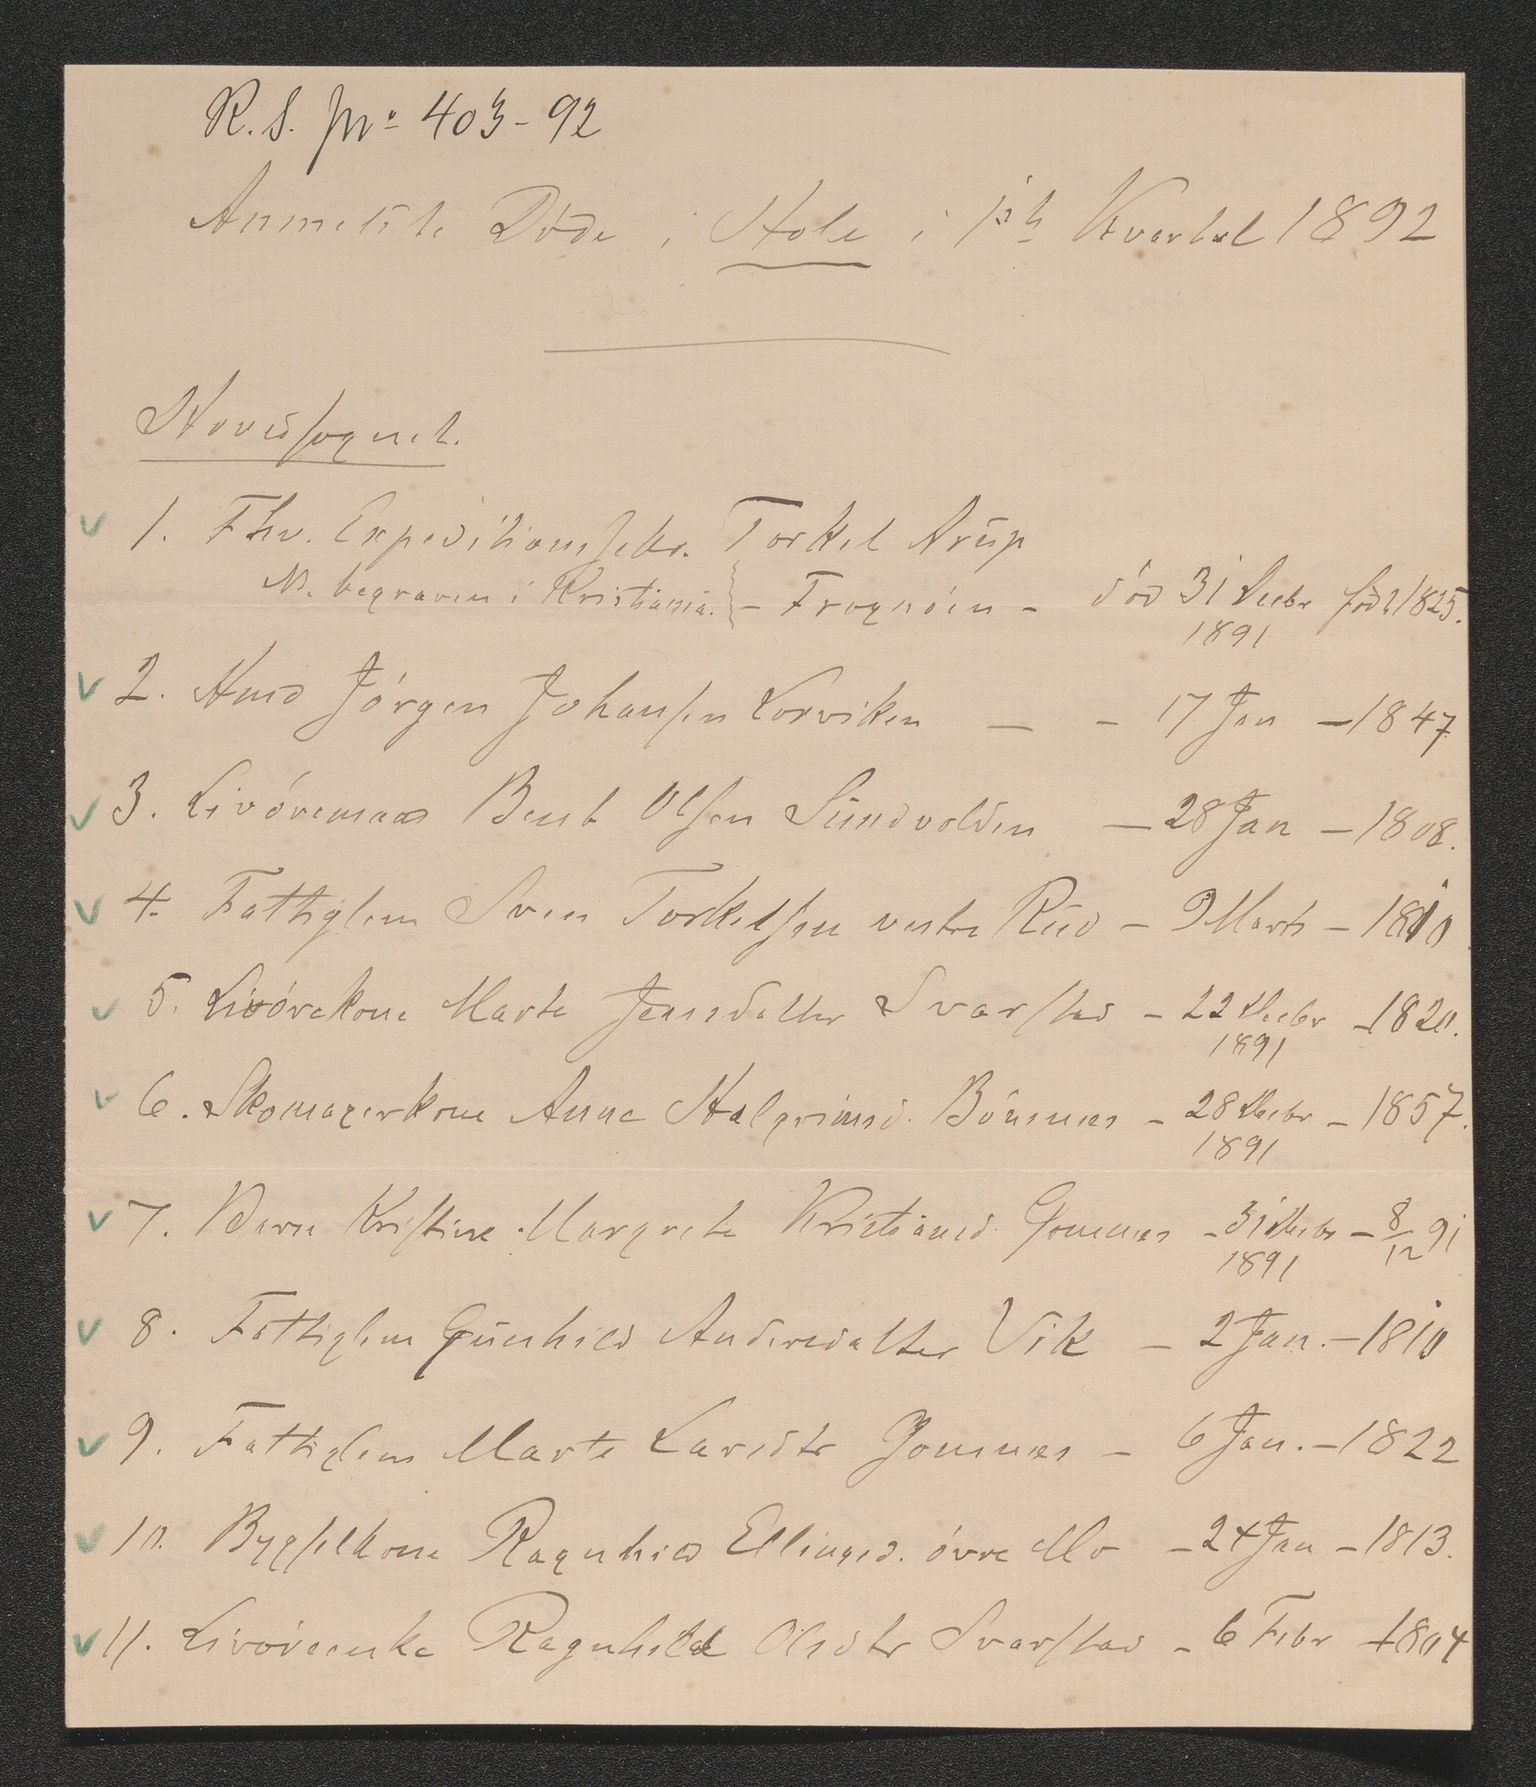 R. S. No 403-92
Anmeldte Døde i Hole i 1ste Kvartal 1892
Hovedsognet.
1. Fhv. Expeditionssekr. Torkel Arup
NB. begraven i Kristiania. } - Frognøen - død 31 Decbr født 1825.
1891
2. Hmd Jörgen Johansen Lorviken — - 17 Jan - 1847.
3. Livöremand Bent Olsen Sundvolden — 28 Jan - 1808.
4. Fattiglem Sven Torkelsen vestre Rud - 9 Marts - 1810
5. Livörekone Marte Jensdatter Svarstad - 22 Decbr - 1820.
1891
6. Skomagerkone Anne Halgrimsd. Bönsnes - 28 Decbr - 1857.
1891
7. Barn Kristine Margrete Kristiansd. Gomnes - 31 Decbr - 8/12 91
1891
8. Fattiglem Gunhild Andersdatter Vik - 2 Jan. - 1810
9. Fattiglem Marte Larsdtr Gomnes - 6 Jan. - 1822
10. Bygselkone Ragnhild Ellingsd. övre Mo - 24 Jan - 1813.
11. Livöreenke Ragnhild Olsdtr Svarstad - 6 Febr - 1804